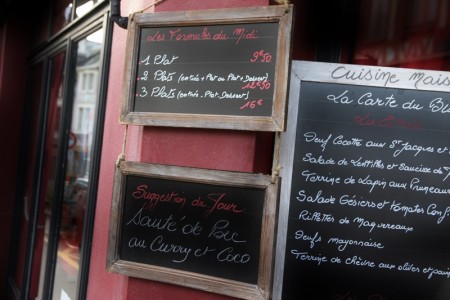 Les Formules du Midi
1 Plat 9€50
2 Plats (entrée + Plat ou Plat + Dessert)
12€50
3 Plats (entrée. Plat. Dessert)
16€
Suggestion du Jour
Sauté de Porc
au Curry et Coco
Cuisine Mais
La Carte du
Oeuf Cocotte aux St Jacques et
Salade de Lentilles et Saucisse de
Terrine de Lapin aux Pruneaux
Salade Gésiers et tomates Conf
Rillettes de maquereaux
Oeufs mayonnaise
Terrine de chèvre aux olives et